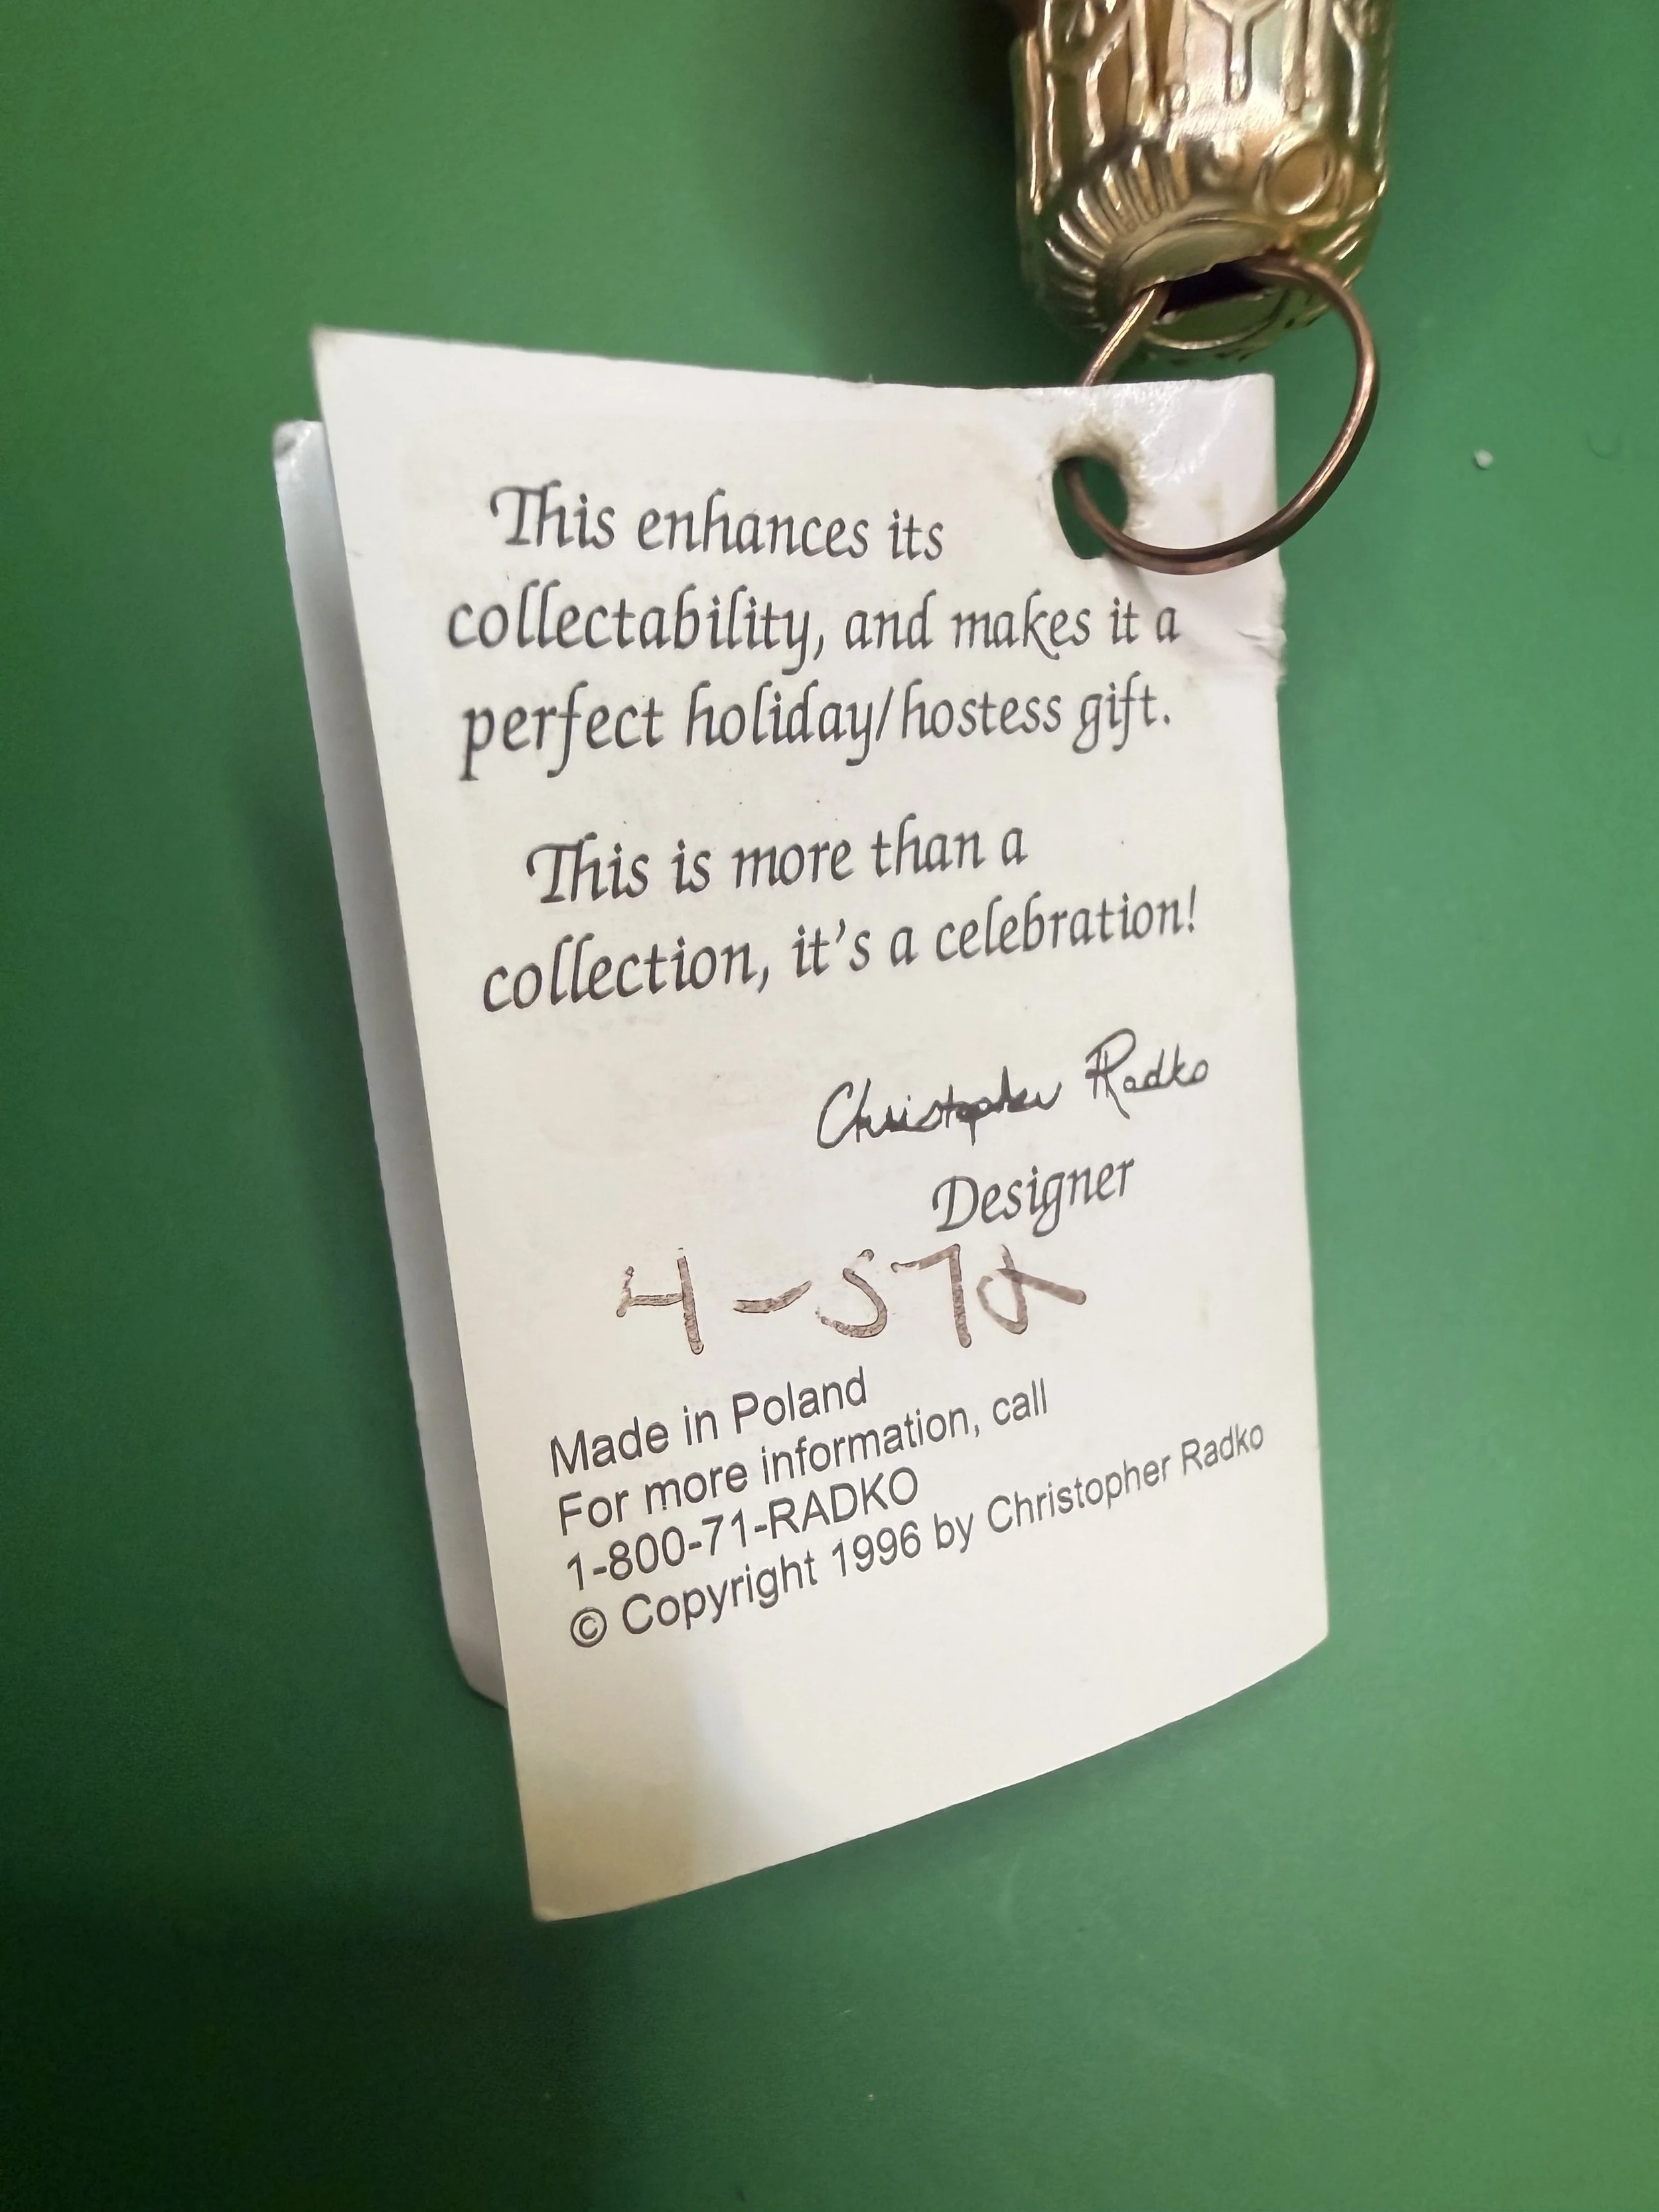 This enhances its
collectability, and makes it a
perfect holiday/hostess gift.
This is more than a
collection, it's a celebration!
Christopher Radko
Designer
Made in Poland
For more information, call
1-800-71-RADKO
© Copyright 1996 by Christopher Radko